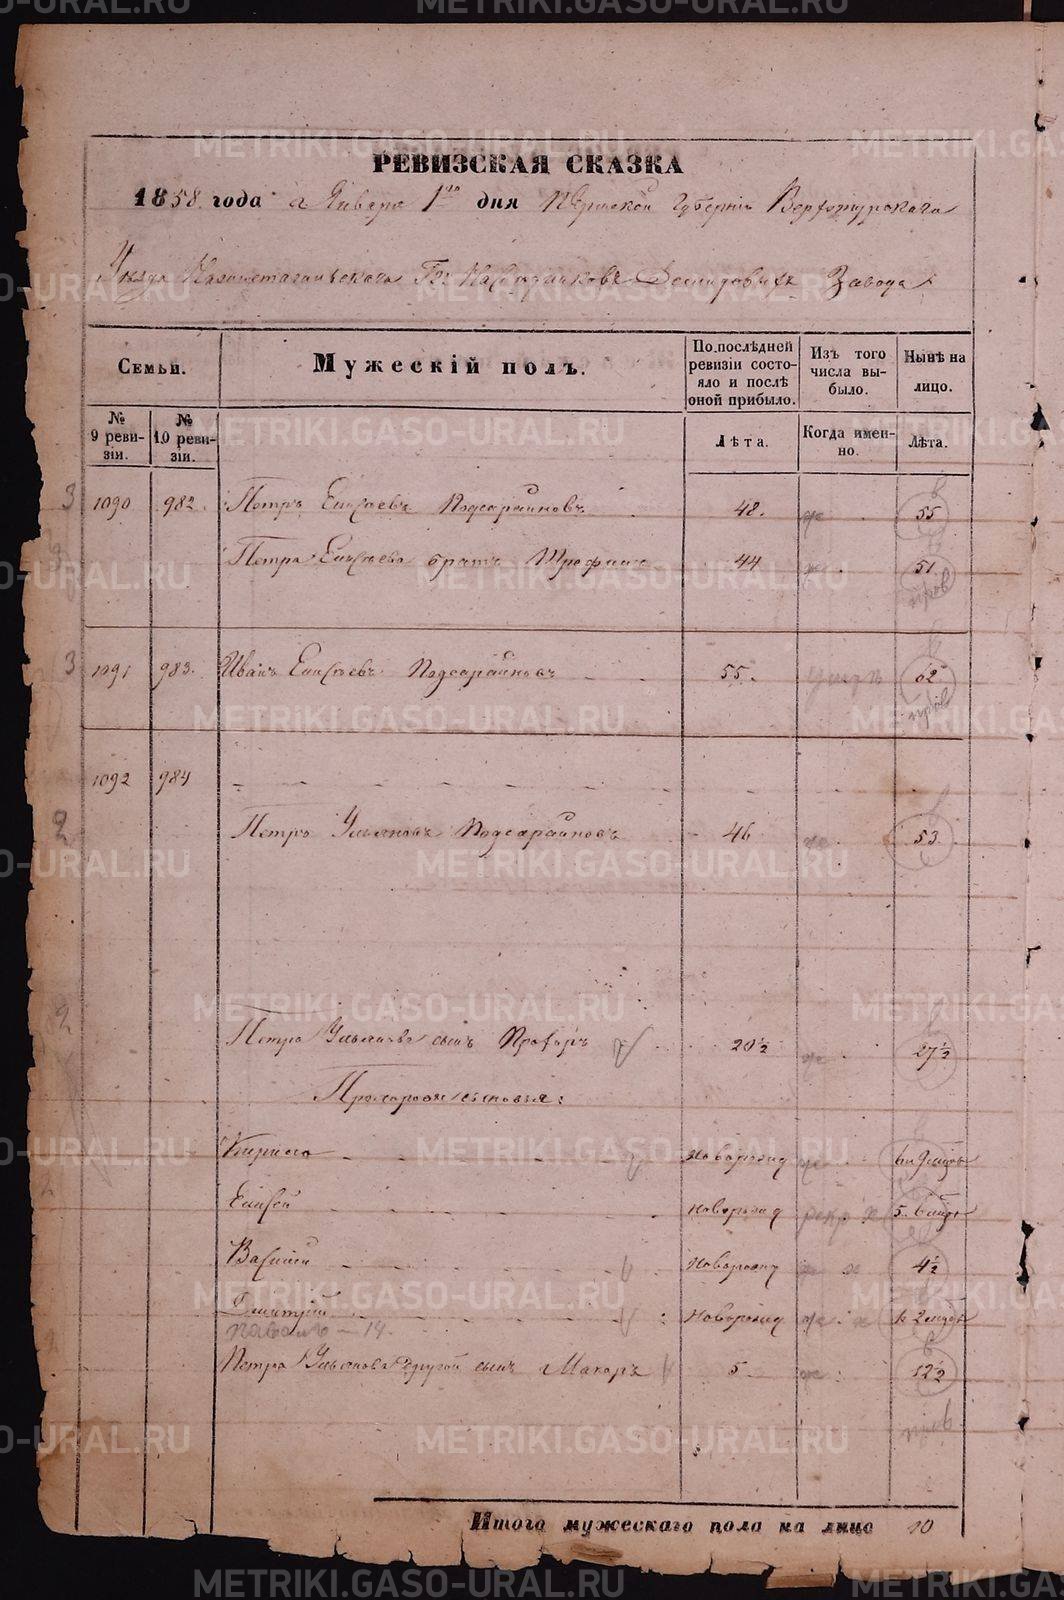 РЕВИЗСКАЯ СКАЗКА
1858 года Января 1го дня Пермской Губернiи Верхотурскаго
Уѣзда Нижнетагильскаго Гг. Наслѣдниковъ Демидовыхъ Завода
Семьи.
Мужескiй полъ.
По послѣдней ревизiи состояло и послѣ оной прибыло.
Изъ того числа выбыло.
Нынѣ на лицо.
№ 9 ревизiи.
№ 10 ревизiи.
Лѣта.
Когда именно.
Лѣта.
3 1090 982. Петръ Елисѣевъ Подсарайновъ 48. 55
Петра Елисѣева братъ Трофимъ 44 51
3 1091 983. Иванъ Елисѣевъ Подсарайновъ 55. 62
1092 984
2 Петръ Ульяновъ Подсарайновъ 46 53.
2 Петра Ульянова сынъ Прохоръ 20½ 27½
Прохоровы сыновья:
Кирило новорожд 6 и 9 мѣсяц
Елисей новорожд 5. 6 мѣсяц
Василiй новорожд 4½
Дмитрiй новорожд 1 2 мѣсяц
Павелъ — 14.
Петра Ульянова другой сынъ Макаръ 5 12½
Итого мужескаго пола на лицо 10
METRIKI.GASO-URAL.RU